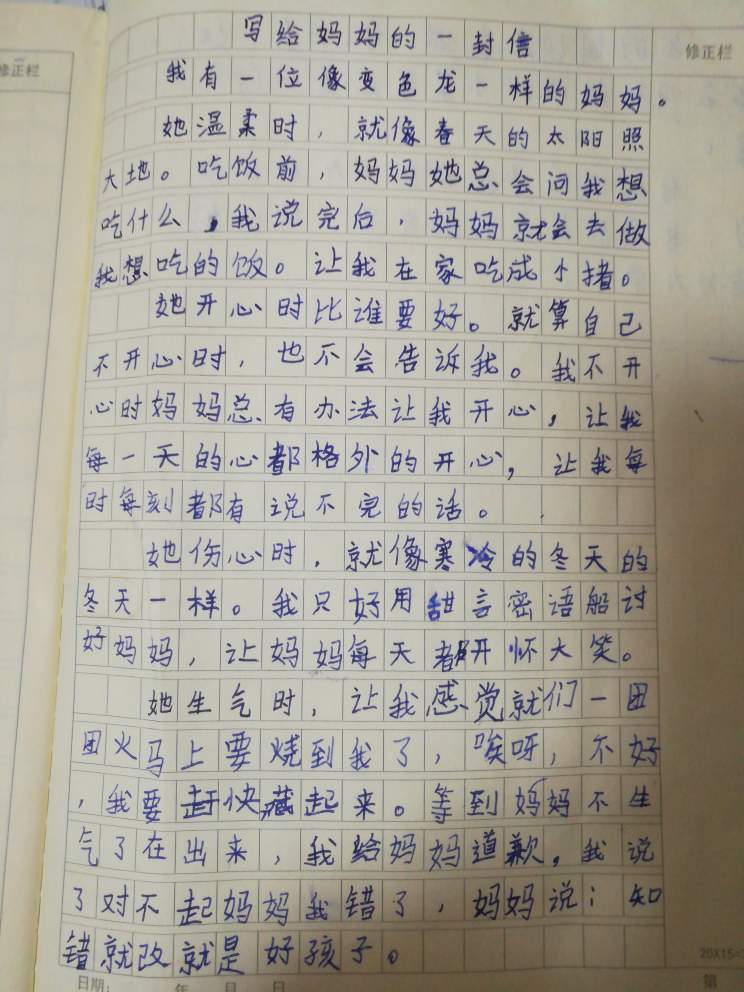 写给妈妈的一封信
修正栏
修正栏
我有一位像变色龙一样的妈妈。
她温柔时，就像春天的太阳照
大地。吃饭前，妈妈她总会问我想
吃什么，我说完后，妈妈就会去做
我想吃的饭。让我在家吃成小猪。
她开心时比谁要好。就算自己
不开心时，也不会告诉我。我不开
心时妈妈总有办法让我开心，让我
每一天的心都格外的开心，让我每
时每刻都有说不完的话。
她伤心时，就像寒冷的冬天的
冬天一样。我只好用甜言密语船讨
好妈妈，让妈妈每天都开怀大笑。
她生气时，让我感觉就们一团
团火马上要烧到我了，唉呀，不好
，我要赶快藏起来。等到妈妈不生
气了在出来，我给妈妈道歉，我说
了对不起妈妈我错了，妈妈说：知
错就改就是好孩子。
20X15=
日期： 年 月 日
第